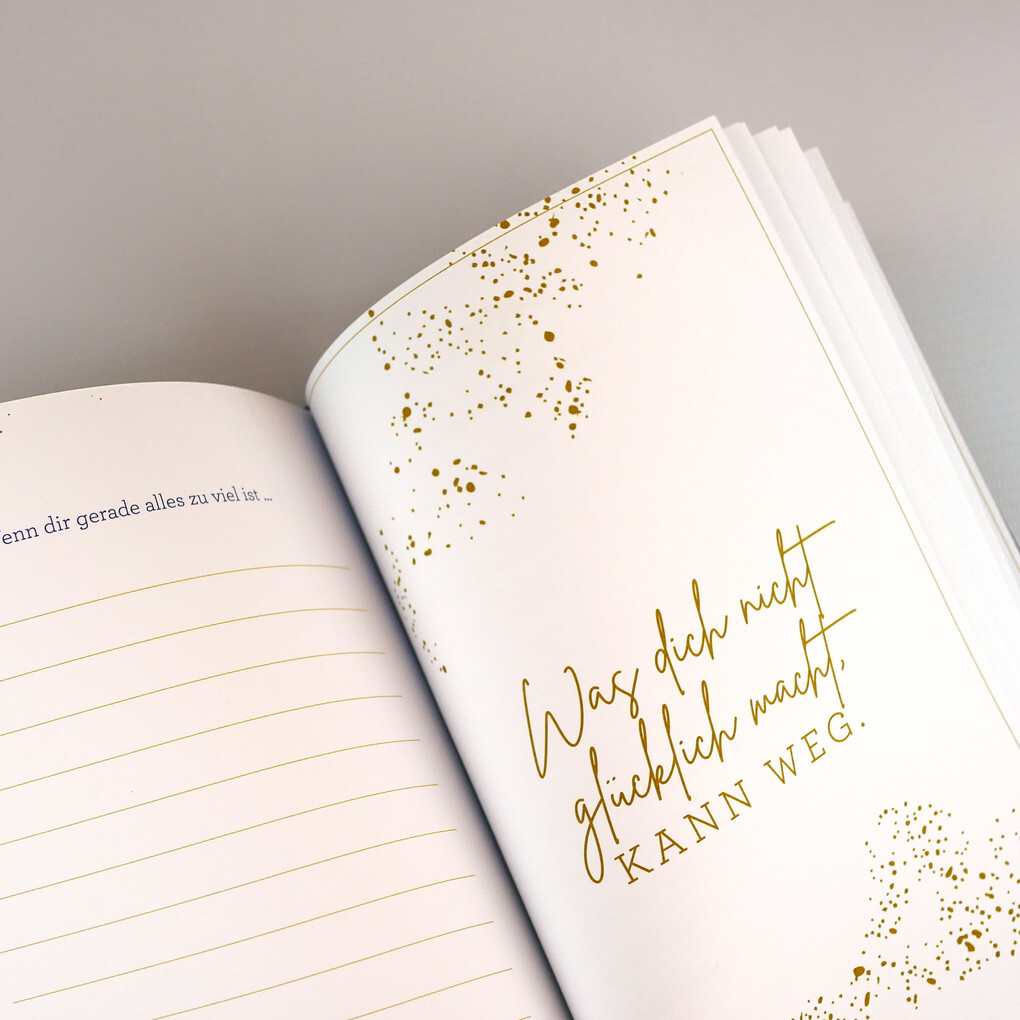 enn dir gerade alles zu viel ist ...
Was dich nicht
glücklich macht,
KANN WEG.